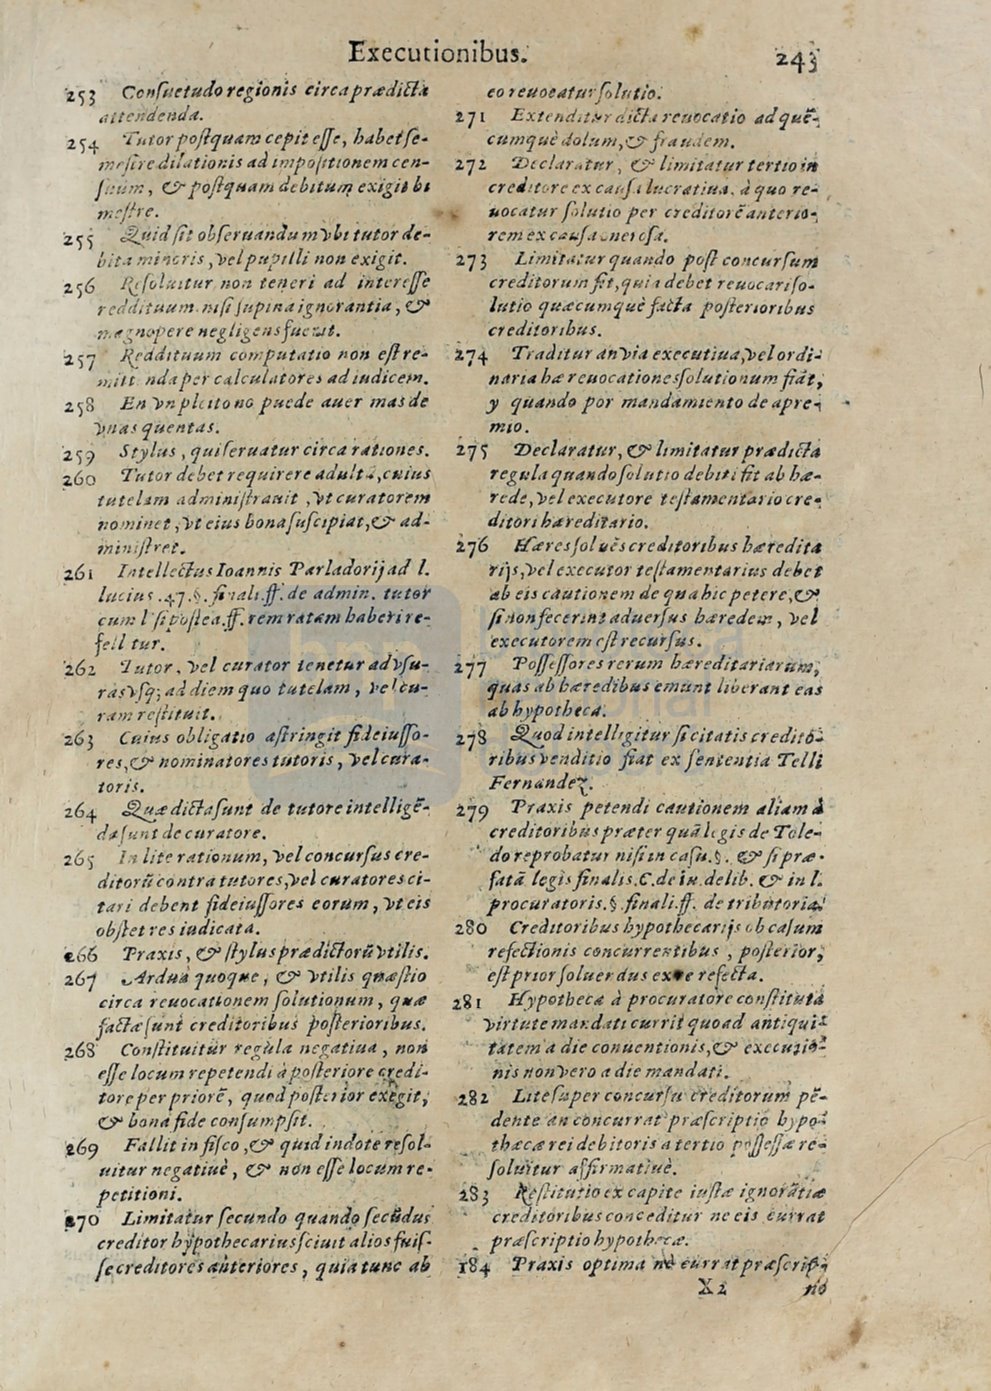 Executionibus.
243
253 Consuetudo regionis circa prædicta
attendenda.
254 Tutor postquam cepit esse, habet se-
mestre dilationis ad impositionem cen-
suum, & postquam debitum exigit bi
mestre.
255 Quid sit obseruandum vbi tutor de-
bita minoris, vel pupilli non exigit.
256 Resoluitur non teneri ad interesse
reddituum nisi supina ignorantia, &
magnopere negligens fuerit.
257 Reddituum computatio non est re-
mittenda per calculatores ad iudicem.
258 En vn pleito no puede auer mas de
vnas quentas.
259 Stylus, qui seruatur circa rationes.
260 Tutor debet requirere adultū, cuius
tutelam administrauit, vt curatorem
nominet, vt eius bona suscipiat, & ad-
ministret.
261 Intellectus Ioannis Parladorij ad l.
lucius .47. §. finali. ff. de admin. tutor
cum l. si postea. ff. rem ratam haberi re-
fell tur.
262 Tutor, vel curator tenetur ad vsu-
ras vsq; ad diem quo tutelam, vel cu-
ram restituit.
263 Cuius obligatio astringit fideiusso-
res, & nominatores tutoris, vel cura-
toris.
264 Quæ dicta sunt de tutore intelligē-
da sunt de curatore.
265 In lite rationum, vel concursus cre-
ditorū contra tutores, vel curatores ci-
tari debent fideiussores eorum, vt eis
obstet res iudicata.
266 Praxis, & stylus prædictorū vtilis.
267 Ardua quoque, & vtilis quæstio
circa reuocationem solutionum, quæ
factæ sunt creditoribus posterioribus.
268 Constituitur regula negatiua, non
esse locum repetendi à posteriore credi-
tore per priorē, quod posterior exegit,
& bona fide consumpsit.
269 Fallit in fisco, & quid in dote resol-
uitur negatiuè, & non esse locum re-
petitioni.
270 Limitatur secundo quando secūdus
creditor hypothecarius sciuit alios fuis-
se creditores anteriores, quia tunc ab
eo reuocatur solutio.
271 Extenditur dicta reuocatio ad quē-
cumquè dolum, & fraudem.
272 Declaratur, & limitatur tertio in
creditore ex causa lucratiua, à quo re-
uocatur solutio per creditorē anterio-
rem ex causa onerosa.
273 Limitatur quando post concursum
creditorum fit, quia debet reuocari so-
lutio quæcumquè facta posterioribus
creditoribus.
274 Traditur an via executiua, vel ordi-
naria hæ reuocationes solutionum fiāt,
y quando por mandamiento de apre-
mio.
275 Declaratur, & limitatur prædicta
regula quando solutio debiti fit ab hæ-
rede, vel executore testamentario cre-
ditori hæreditario.
276 Hæres soluēs creditoribus hæredita
rijs, vel executor testamentarius debet
ab eis cautionem de qua hic petere, &
si non fecerint aduersus hæredem, vel
executorem est recursus.
277 Possessores rerum hæreditariarum,
quas ab hæredibus emunt liberant eas
ab hypotheca.
278 Quod intelligitur si citatis credito-
ribus venditio fiat ex sententia Telli
Fernandez.
279 Praxis petendi cautionem aliam à
creditoribus præter quā legis de Tole-
do reprobatur nisi in casu. §. & si præ-
fatā legis finalis. C. de iu. delib. & in l.
procuratoris. § finali. ff. de tributoria.
280 Creditoribus hypothecarijs ob casum
refectionis concurrentibus, posterior,
est prior soluendus ex re refecta.
281 Hypotheca à procuratore constituta
virtute mandati currit quoad antiqui-
tatem a die conuentionis, & executio-
nis non vero a die mandati.
282 Lite super concursu creditorum pē-
dente an concurrat præscriptio hypo-
thæcæ rei debitoris a tertio possessæ re-
soluitur affirmatiuè.
283 Restitutio ex capite iustæ ignorātiæ
creditoribus conceditur ne eis currat
præscriptio hypothecæ.
184 Praxis optima ne currat præscrip-
X2
no